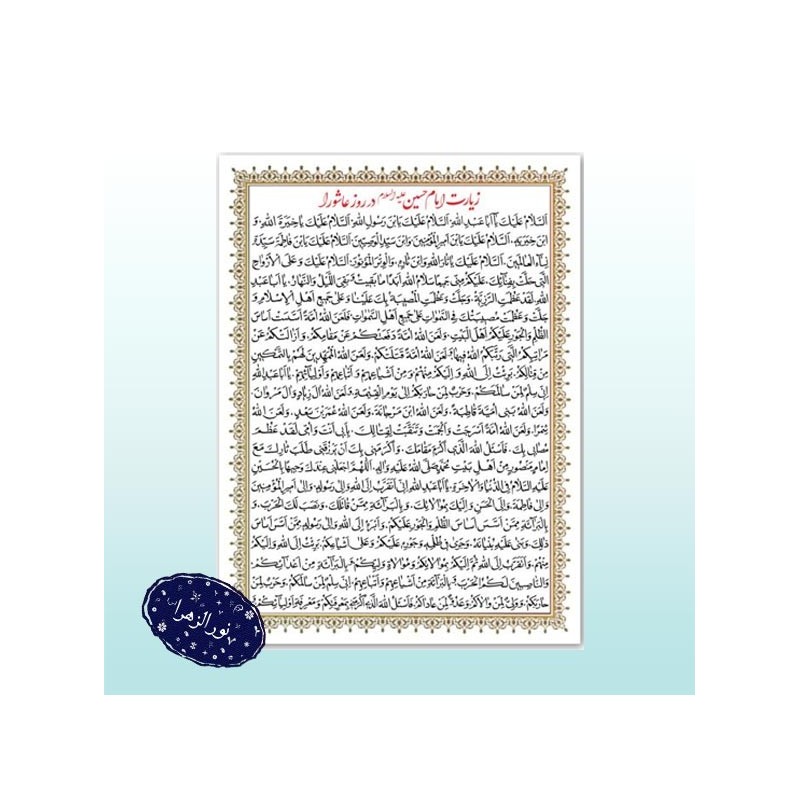 زیارت امام حسین علیه السلام در روز عاشورا
اَلسَّلامُ عَلَيْكَ يا اَبا عَبْدِ اللهِ، اَلسَّلامُ عَلَيْكَ يَابْنَ رَسُولِ اللهِ، اَلسَّلامُ عَلَيْكَ يا خِيَرَةَ اللهِ، وَ
ابْنَ خِيَرَتِهِ، اَلسَّلامُ عَلَيْكَ يَابْنَ اَميرِ الْمُؤْمِنينَ وَابْنَ سَيِّدِ الْوَصِيّينَ، اَلسَّلامُ عَلَيْكَ يَابْنَ فاطِمَةَ سَيِّدَةِ
نِساءِ الْعالَمينَ، اَلسَّلامُ عَلَيْكَ يا ثارَ اللهِ وَابْنَ ثارِهِ، وَالْوِتْرَ الْمَوْتُورَ، اَلسَّلامُ عَلَيْكَ وَعَلَى الْاَرْواحِ
الَّتى حَلَّتْ بِفِنائِكَ، عَلَيْكُمْ مِنّى جَميعًا سَلامُ اللهِ اَبَدًا ما بَقيتُ وَبَقِىَ اللَّيْلُ وَالنَّهارُ، يا اَبا عَبْدِ
اللهِ، لَقَدْ عَظُمَتِ الرَّزِيَّةُ، وَجَلَّتْ وَعَظُمَتِ الْمُصيبَةُ بِكَ عَلَيْنا وَعَلى جَميعِ اَهْلِ الْاِسْلامِ، وَ
جَلَّتْ وَعَظُمَتْ مُصيبَتُكَ فِى السَّمٰوٰاتِ عَلى جَميعِ اَهْلِ السَّمٰوٰاتِ، فَلَعَنَ اللهُ اُمَّةً اَسَّسَتْ اَساسَ
الظُّلْمِ وَالْجَوْرِ عَلَيْكُمْ اَهْلَ الْبَيْتِ، وَلَعَنَ اللهُ اُمَّةً دَفَعَتْكُمْ عَنْ مَقامِكُمْ، وَاَزالَتْكُمْ عَنْ
مَراتِبِكُمُ الَّتى رَتَّبَكُمُ اللهُ فيها، وَلَعَنَ اللهُ اُمَّةً قَتَلَتْكُمْ، وَلَعَنَ اللهُ الْمُمَهِّدينَ لَهُمْ بِالتَّمْكينِ
مِنْ قِتالِكُمْ، بَرِئْتُ اِلَى اللهِ وَاِلَيْكُمْ مِنْهُمْ وَمِنْ اَشْياعِهِمْ وَاَتْباعِهِمْ وَاَوْلِيائِهِمْ، يا اَبا عَبْدِ اللهِ
اِنّى سِلْمٌ لِمَنْ سالَمَكُمْ، وَحَرْبٌ لِمَنْ حارَبَكُمْ اِلى يَوْمِ الْقِيٰمَةِ، وَلَعَنَ اللهُ آلَ زِيادٍ وَآلَ مَرْوانَ،
وَلَعَنَ اللهُ بَنى اُمَيَّةَ قاطِبَةً، وَلَعَنَ اللهُ ابْنَ مَرْجانَةَ، وَلَعَنَ اللهُ عُمَرَ بْنَ سَعْدٍ، وَلَعَنَ اللهُ
شِمْرًا، وَلَعَنَ اللهُ اُمَّةً اَسْرَجَتْ وَاَلْجَمَتْ وَتَنَقَّبَتْ لِقِتالِكَ، بِاَبى اَنْتَ وَاُمّى لَقَدْ عَظُمَ
مُصابى بِكَ، فَاَسْئَلُ اللهَ الَّذى اَكْرَمَ مَقامَكَ، وَاَكْرَمَنى بِكَ اَنْ يَرْزُقَنى طَلَبَ ثارِكَ مَعَ
اِمامٍ مَنْصُورٍ مِنْ اَهْلِ بَيْتِ مُحَمَّدٍ صَلَّى اللهُ عَلَيْهِ وَآلِهِ، اَللّٰهُمَّ اجْعَلْنى عِنْدَكَ وَجيهًا بِالْحُسَيْنِ
عَلَيْهِ السَّلامُ فِى الدُّنْيا وَالْاٰخِرَةِ، يا اَبا عَبْدِ اللهِ اِنّى اَتَقَرَّبُ اِلَى اللهِ وَاِلى رَسُولِهِ، وَاِلى اَميرِ الْمُؤْمِنينَ
وَاِلى فاطِمَةَ، وَاِلَى الْحَسَنِ وَاِلَيْكَ بِمُوالاتِكَ، وَبِالْبَرٰائَةِ مِمَّنْ قاتَلَكَ، وَنَصَبَ لَكَ الْحَرْبَ، وَ
بِالْبَرٰائَةِ مِمَّنْ اَسَّسَ اَساسَ الظُّلْمِ وَالْجَوْرِ عَلَيْكُمْ، وَاَبْرَءُ اِلَى اللهِ وَاِلى رَسُولِهِ مِمَّنْ اَسَّسَ اَساسَ
ذٰلِكَ، وَبَنى عَلَيْهِ بُنْيانَهُ، وَجَرى فى ظُلْمِهِ وَجَوْرِهِ عَلَيْكُمْ وَعَلى اَشْياعِكُمْ، بَرِئْتُ اِلَى اللهِ وَاِلَيْكُمْ
مِنْهُمْ، وَاَتَقَرَّبُ اِلَى اللهِ ثُمَّ اِلَيْكُمْ بِمُوالاتِكُمْ وَمُوالاةِ وَلِيِّكُمْ، وَبِالْبَرٰائَةِ مِنْ اَعْدائِكُمْ،
وَالنّاصِبينَ لَكُمُ الْحَرْبَ، وَبِالْبَرٰائَةِ مِنْ اَشْياعِهِمْ وَاَتْباعِهِمْ، اِنّى سِلْمٌ لِمَنْ سالَمَكُمْ، وَحَرْبٌ لِمَنْ
حارَبَكُمْ، وَوَلِىٌّ لِمَنْ والاكُمْ وَعَدُوٌّ لِمَنْ عاداكُمْ، فَاَسْئَلُ اللهَ الَّذى اَكْرَمَنى بِمَعْرِفَتِكُمْ وَمَعْرِفَةِ اَوْلِيائِكُمْ، وَ
نور الزهرا